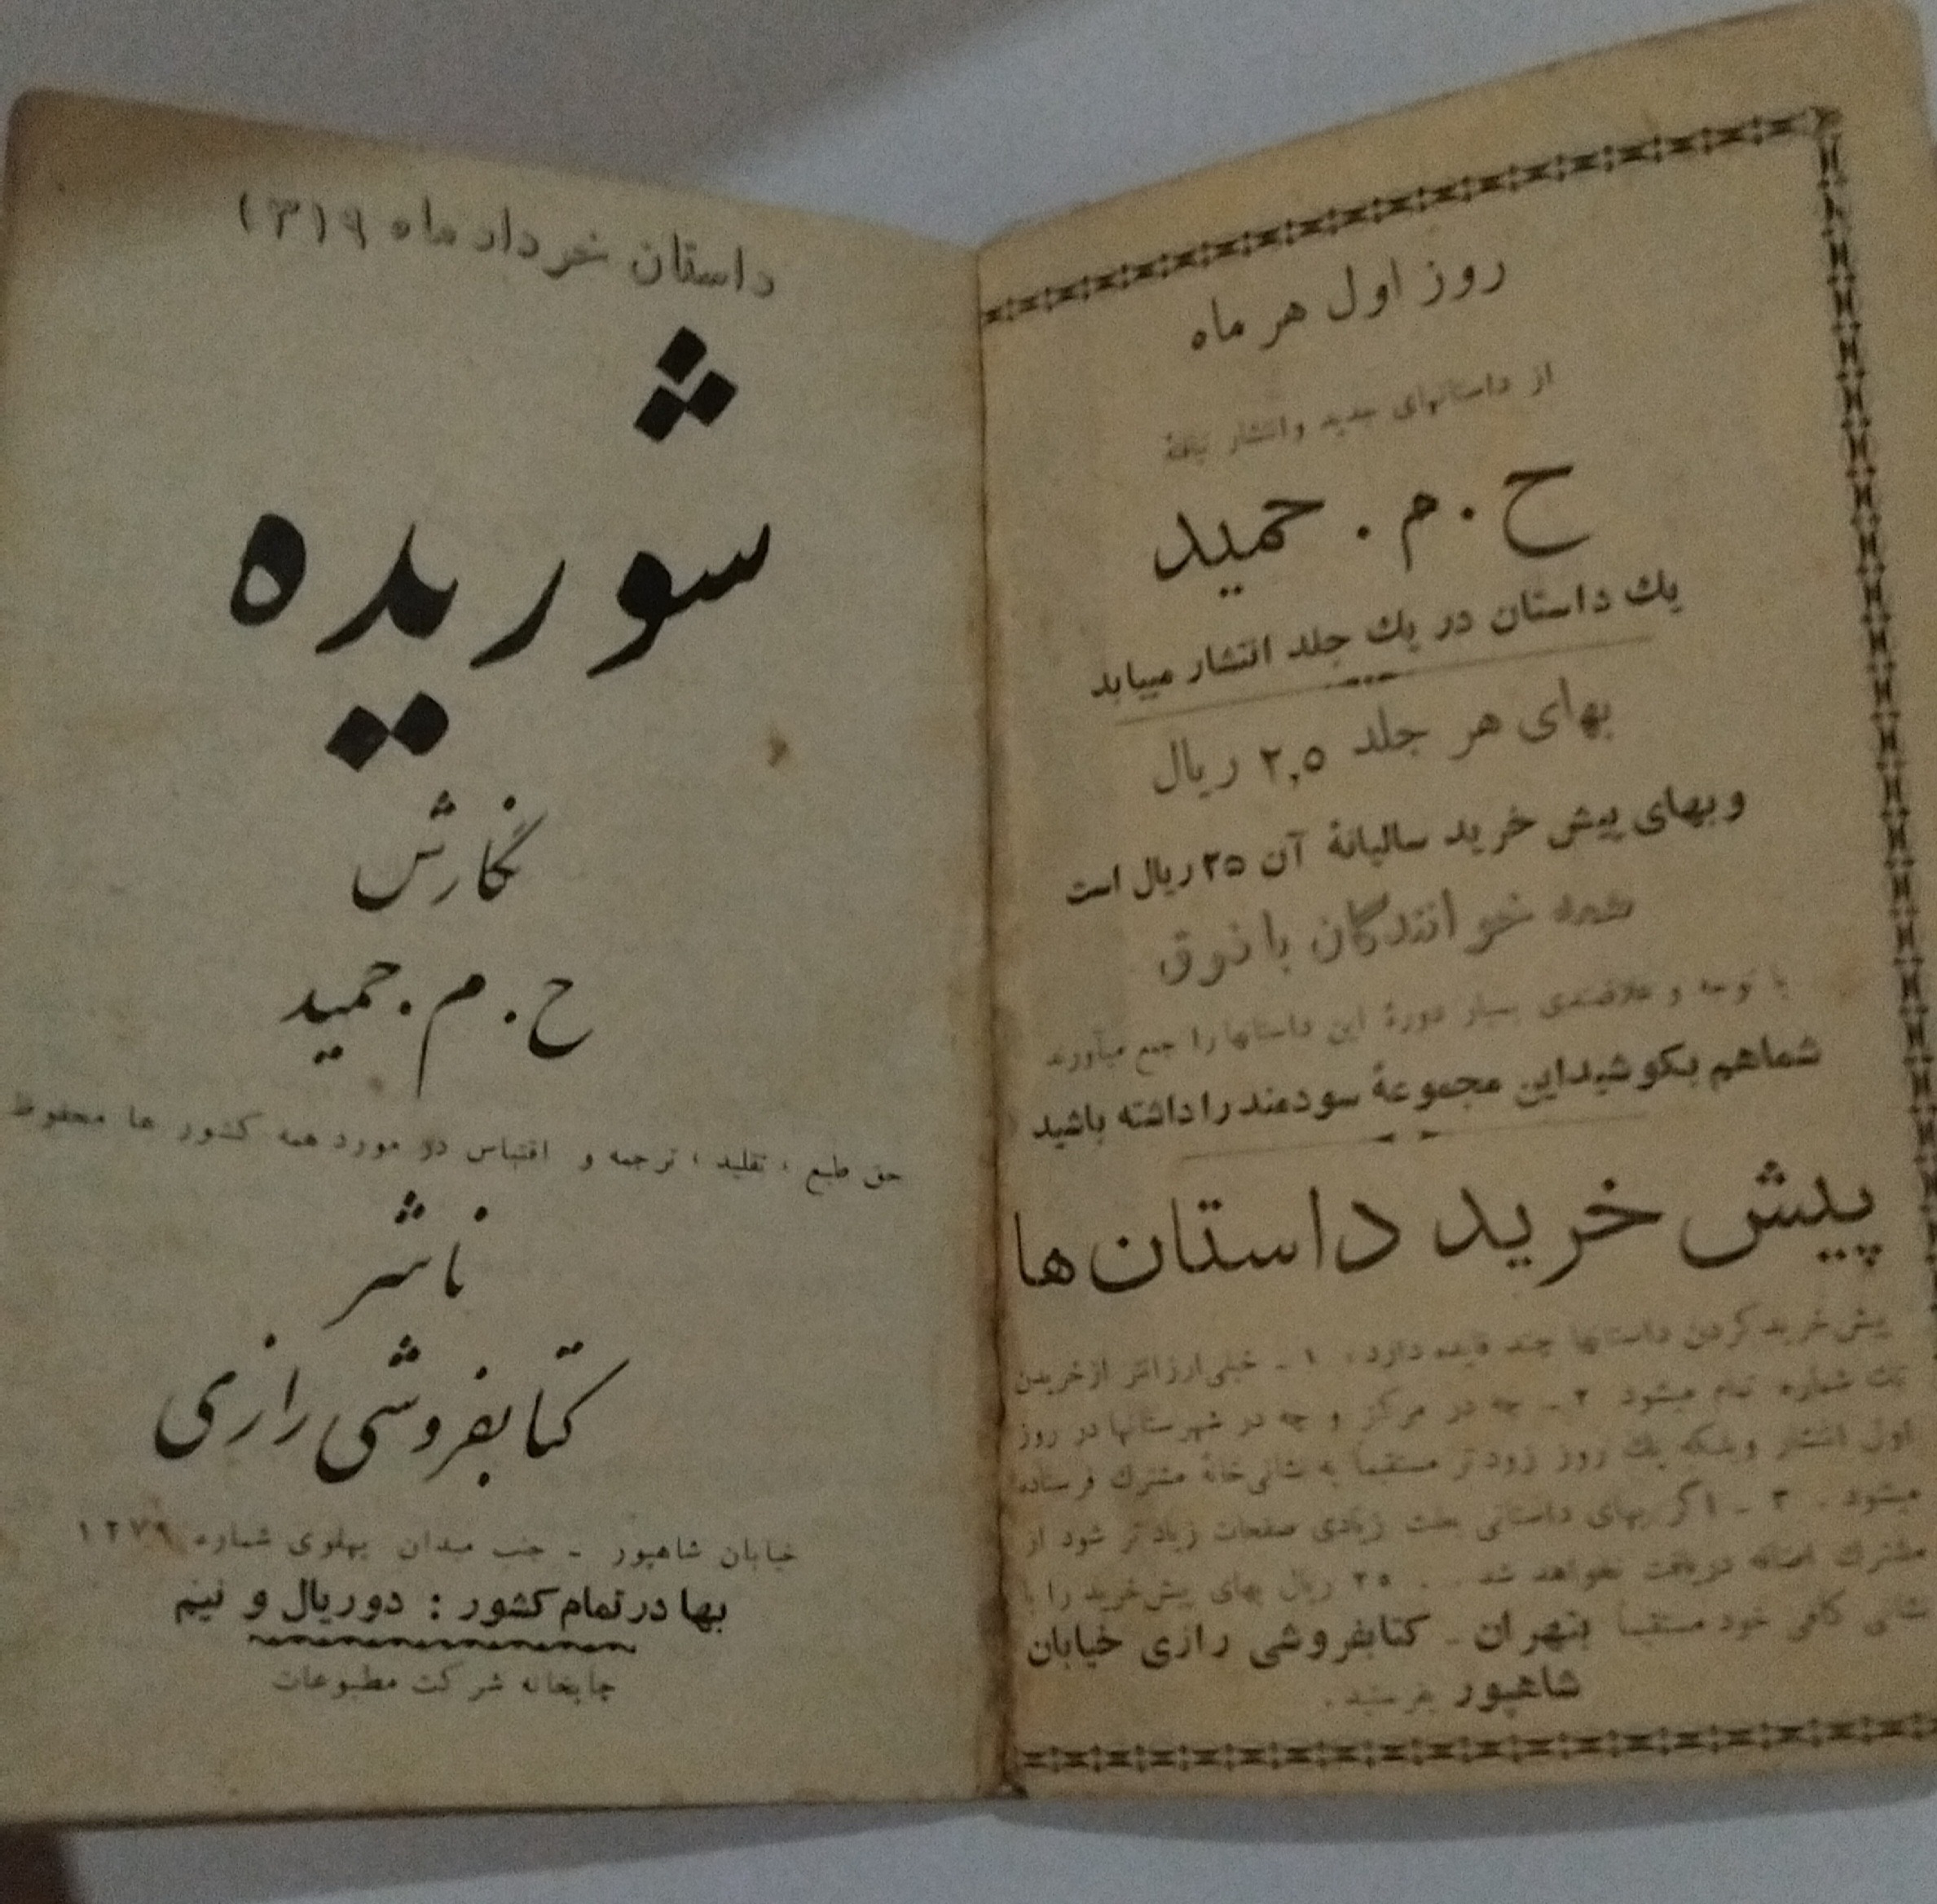 روز اول هر ماه
از داستانهای جدید و انتشار نیافتهٔ
ح . م . حمید
یك داستان در یك جلد انتشار مییابد
بهای هر جلد ۲٫۵ ریال
و بهای پیش خرید سالیانهٔ آن ۲۵ ریال است
همه خوانندگان با ذوق
با توجه و علاقمندی بسیار دورهٔ این داستانها را جمع میآورند
شماهم بکوشید این مجموعهٔ سودمند را داشته باشید
پیش خرید داستان ها
پیش خرید کردن داستانها چند فایده دارد، ۱ ـ خیلی ارزانتر از خریدن
تك شماره تمام میشود ۲ ـ چه در مرکز و چه در شهرستانها در روز
اول انتشار وبلکه یك روز زودتر مستقیما به نشانی خانهٔ مشترك فرستاده
میشود . ۳ ـ اگر بهای داستانی بعلت زیادی صفحات زیادتر شود از
مشترك اضافه دریافت نخواهد شد ... ۲۵ ریال بهای پیش خرید را با
نشانی کافی خود مستقیما بتهران ـ کتابفروشی رازی خیابان
شاهپور بفرستید .
داستان خرداد ماه ۱۳۱۹
شوریده
نگارش
ح . م . حمید
حق طبع ، تقلید ، ترجمه و اقتباس در مورد همه کشور ها محفوظ
ناشر
کتابفروشی رازی
خیابان شاهپور ـ جنب میدان پهلوی شماره ۱۲۷۹
بها در تمام کشور : دو ریال و نیم
چاپخانه شرکت مطبوعات